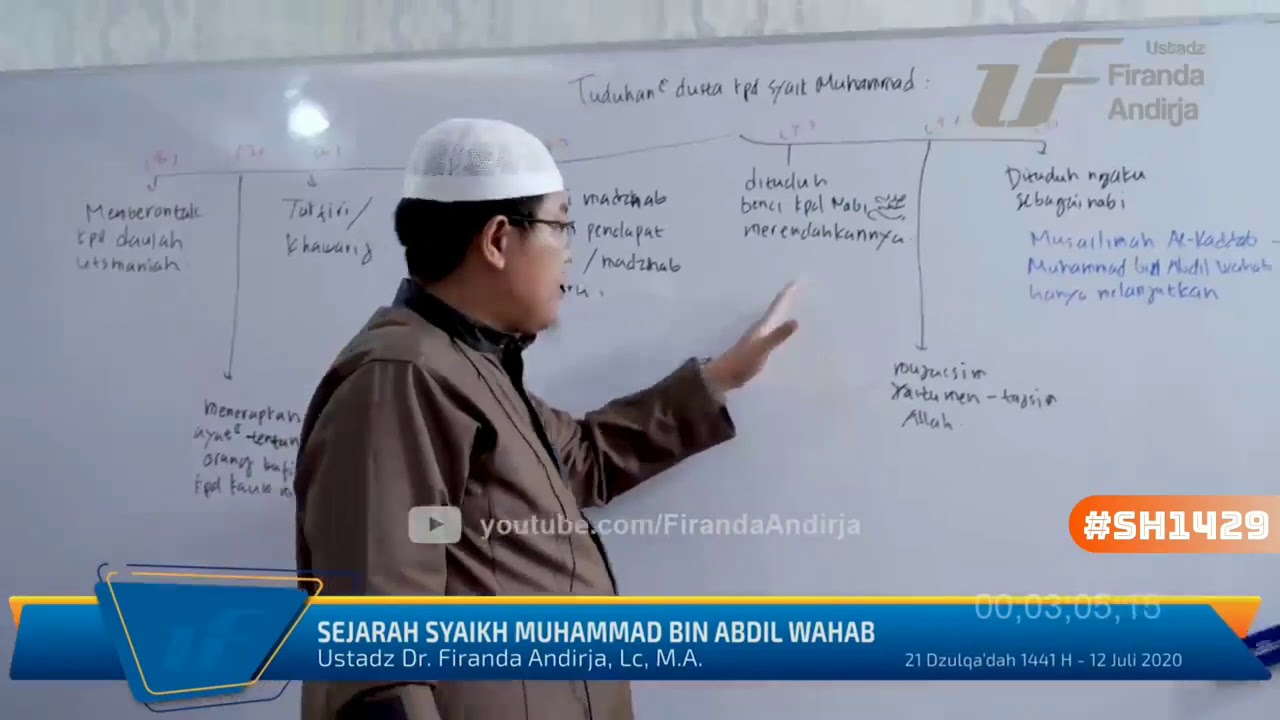 Tuduhan² dusta kpd syaik Muhammad :
Ustadz
Firanda
Andirja
Memberontak
kpd daulah
utsmaniah
Takfiri /
khawarij
madzhab
pendapat
/ madzhab
dituduh
benci kpd Nabi ﷺ
merendahkannya
Dituduh ngaku
sebagai nabi
Musailimah Al-Kaddzab
Muhammad bin Abdil Wahab
hanya melanjutkan
mujassim
yaitu men-tajsim
Allah
menerapkan
ayat²
orang
kpd kaum
youtube.com/FirandaAndirja
#SH1429
00;03;05;15
SEJARAH SYAIKH MUHAMMAD BIN ABDIL WAHAB
Ustadz Dr. Firanda Andirja, Lc, M.A.
21 Dzulqa'dah 1441 H - 12 Juli 2020